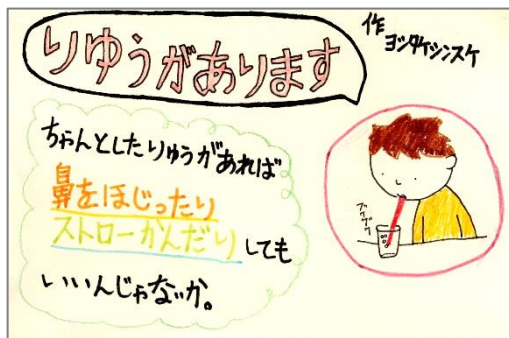 りゆうがあります
作
ヨシタケシンスケ
ちゃんとしたりゆうがあれば
鼻をほじったり
ストローかんだりしても
いいんじゃないか。
ブクブク